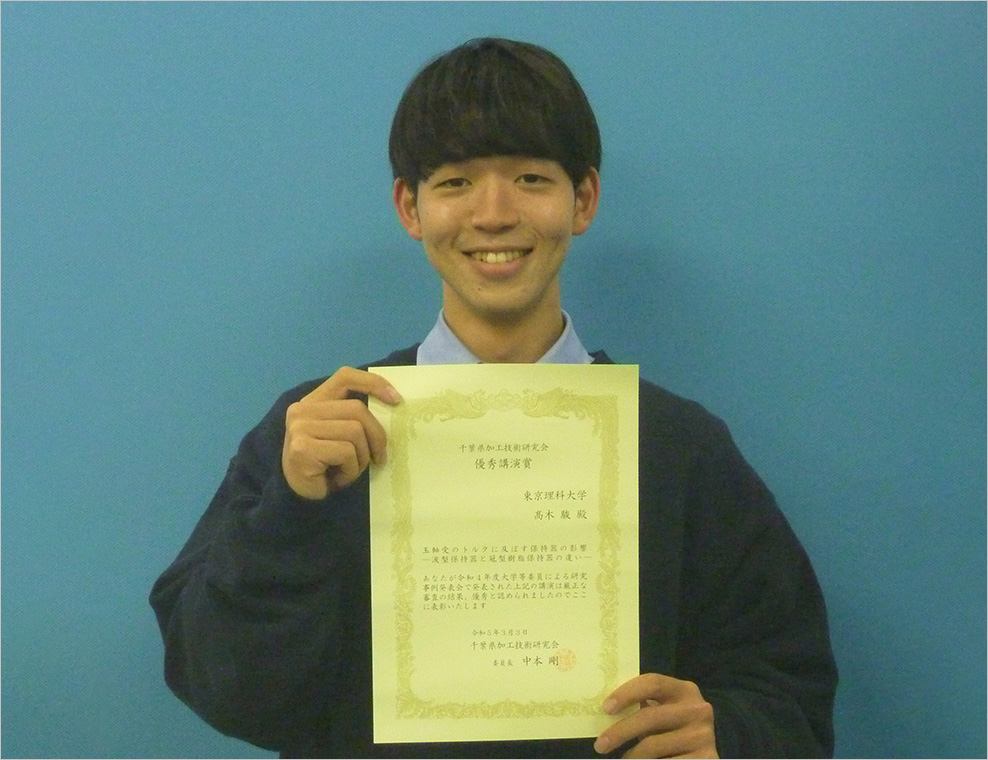 千葉県加工技術研究会
優秀講演賞
東京理科大学
高木 駿 殿
玉軸受のトルクに及ぼす保持器の影響
―波型保持器と冠型樹脂保持器の違い―
あなたが令和4年度大学等委員による研究
事例発表会で発表された上記の講演は厳正な
審査の結果、優秀と認められましたのでここ
に表彰いたします
令和5年3月3日
千葉県加工技術研究会
委員長 中本 剛